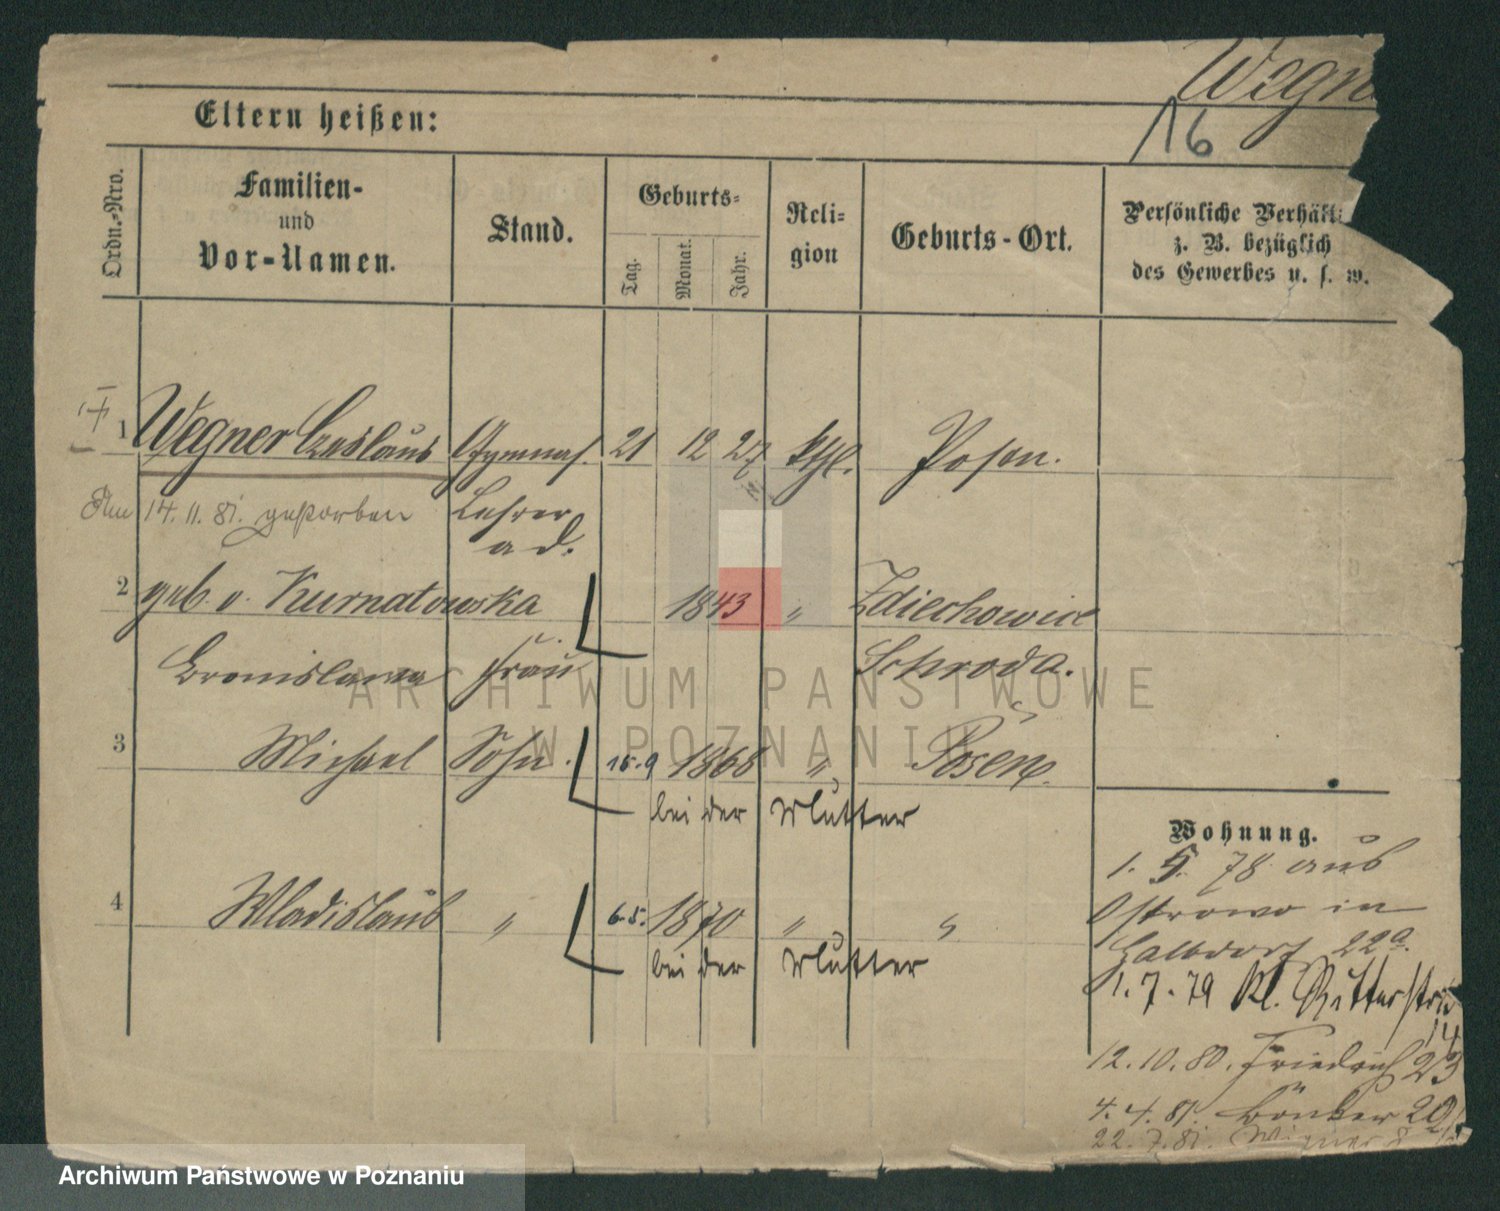 Wegn
16
Eltern heißen:
Ordn.-Nro.
Familien-
und
Vor-Namen.
Stand.
Geburts-
Tag.
Monat.
Jahr.
Reli-
gion
Geburts-Ort.
Persönliche Verhält
z. B. bezüglich
des Gewerbes u. s. w.
1 Wegner Czeslaus Gymnas. 21 12 27 kthl. Posen.
14. 11. 81. gestorben Lehrer
a. d.
2 geb. v. Kurnatowska 1843 " Zdiechowice
Bronislawa Frau Schroda.
3 Michael Sohn. 15. 9 1868 " Posen.
bei der Mutter
4 Wladislaus " 6. 5. 1870 " "
bei der Mutter
Wohnung.
1. 5. 78 aus
Ostrowo in
Halbdorf 22a.
1. 7. 79 Kl. Ritterstr
14
12. 10. 80. Friedrich 23
4. 4. 81.
22. 7. 81. Wiener 8
ARCHIWUM PAŃSTWOWE
W POZNANIU
Archiwum Państwowe w Poznaniu